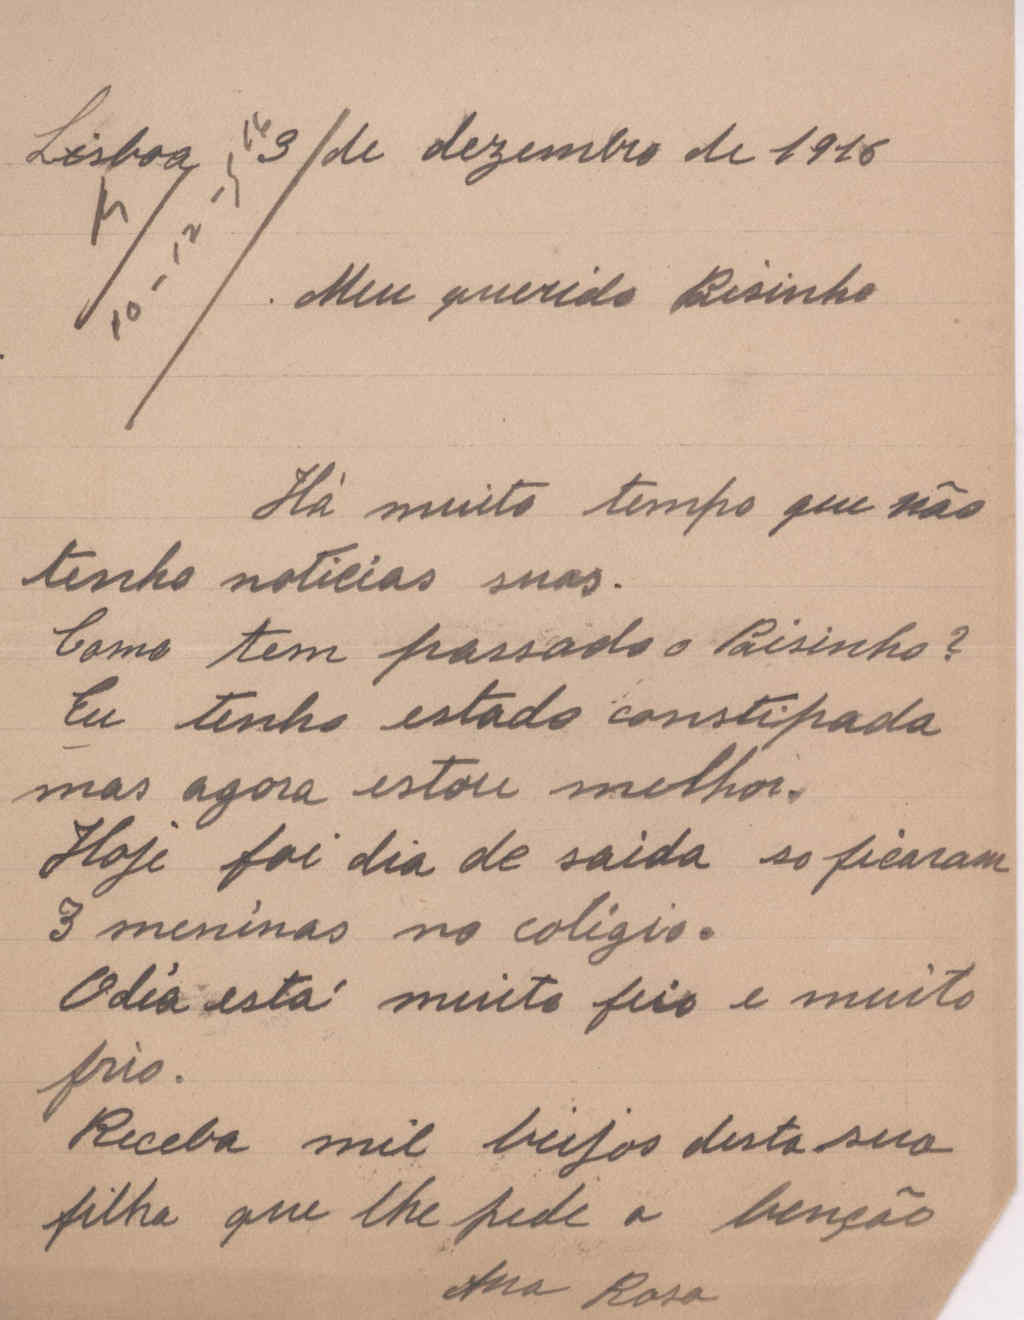 Lisboa 3 de dezembro de 1916
10-12-916
Meu querido Paisinho
Há muito tempo que não
tenho noticias suas.
Como tem passado o Paisinho?
Eu tenho estado constipada
mas agora estou melhor.
Hoje foi dia de saida so ficaram
3 meninas no coligio.
O dia está muito feio e muito
frio.
Receba mil beijos desta sua
filha que lhe pede a benção
Ana Rosa